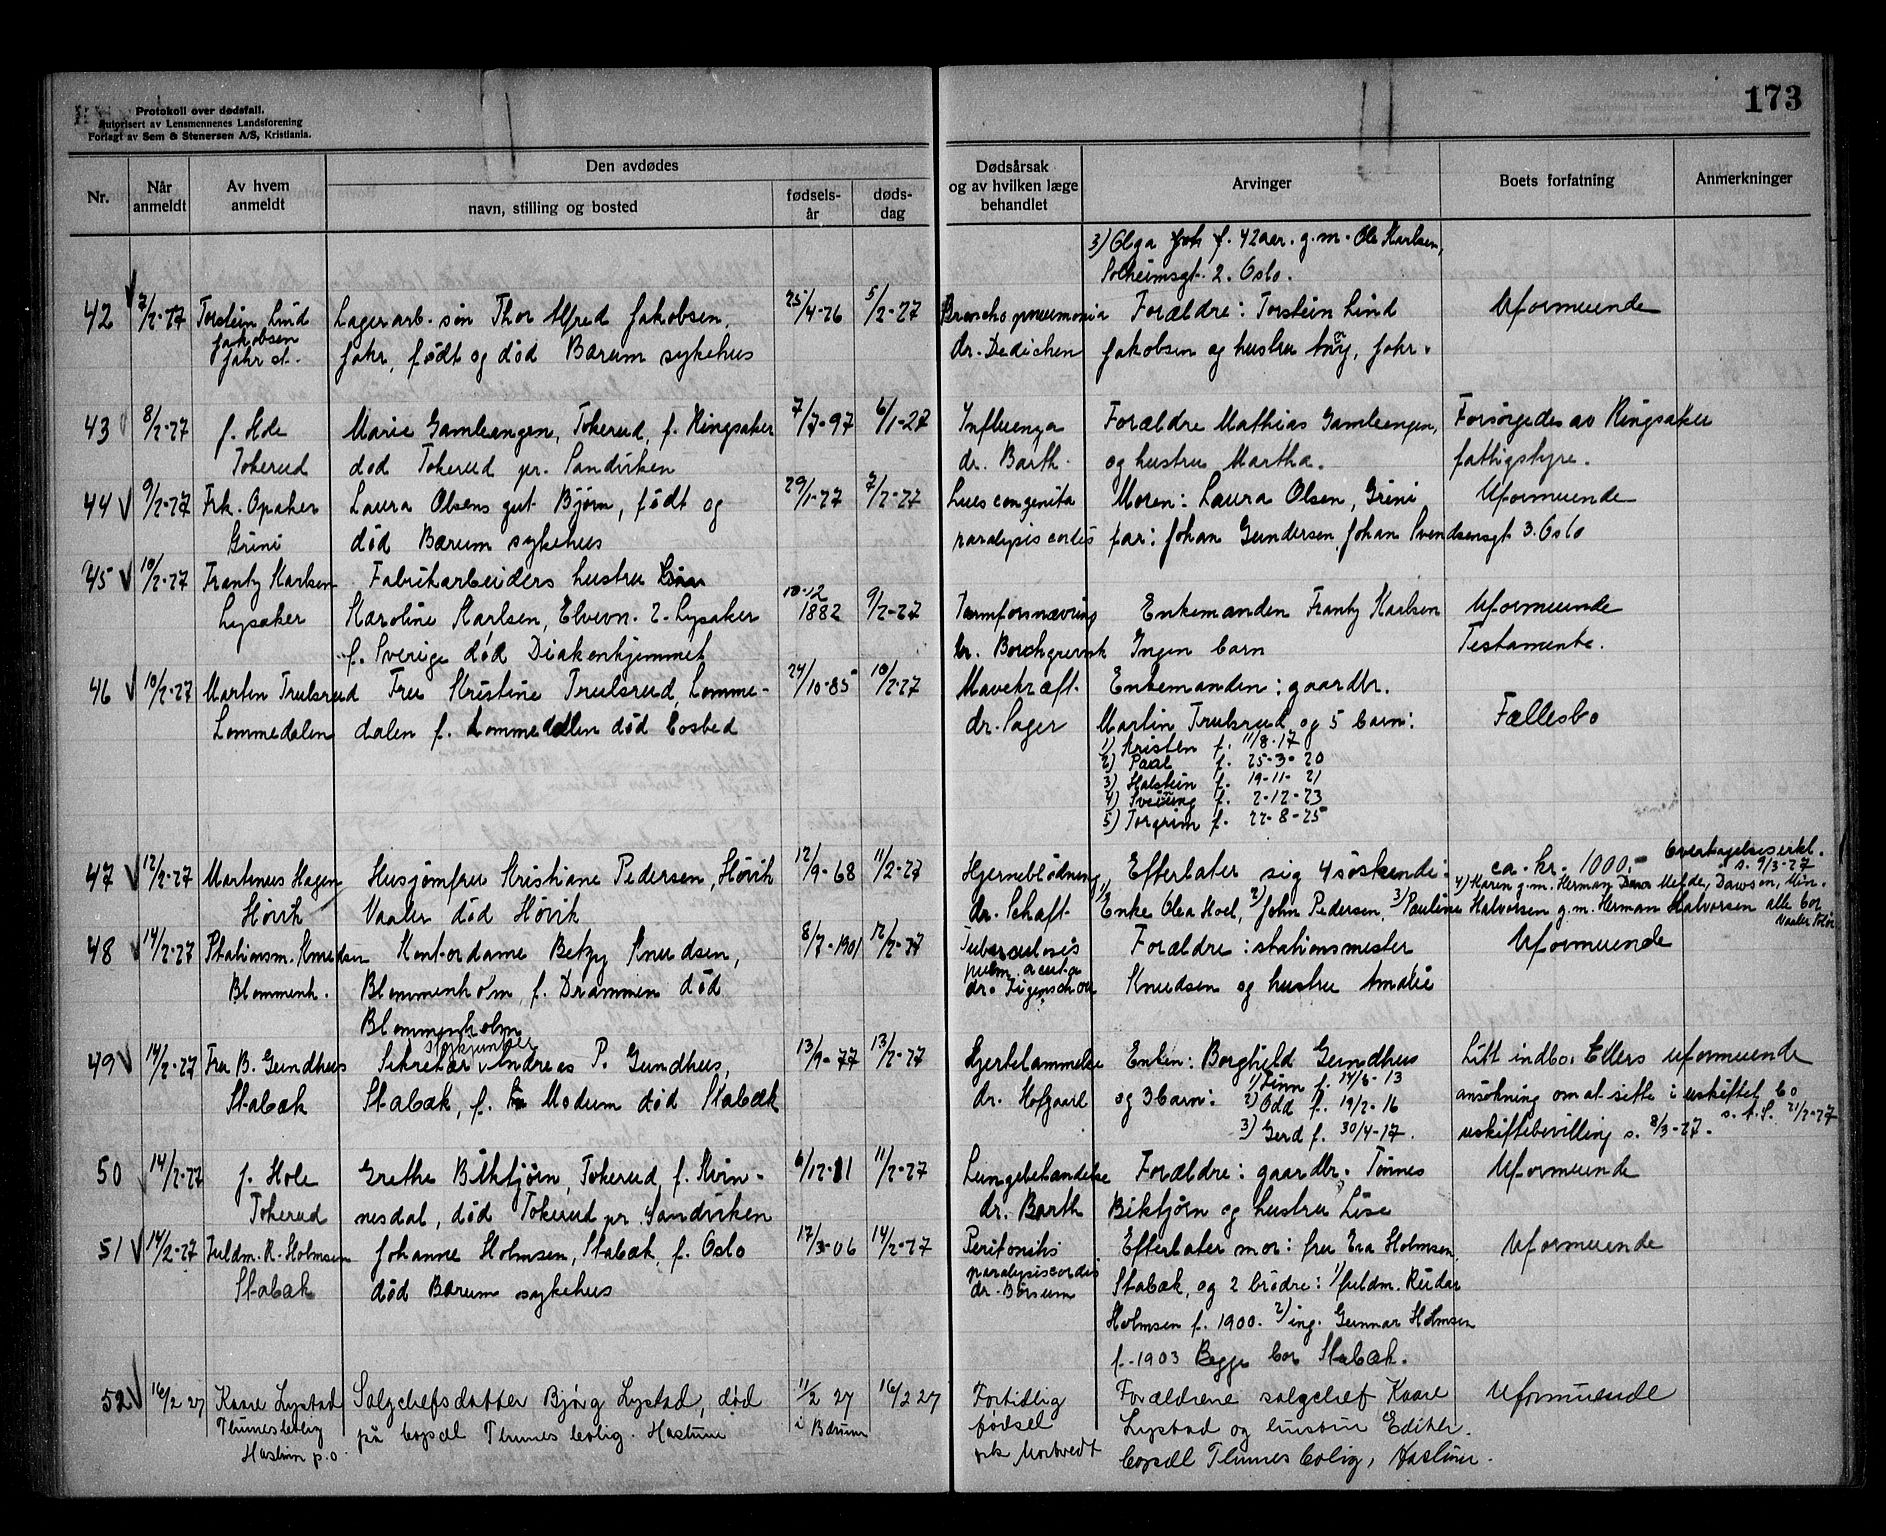 173
Protokoll over dødsfall.
Autorisert av Lensmennenes Landsforening
Forlagt av Sem & Stenersen A/S, Kristiania.
Nr.
Når anmeldt
Av hvem anmeldt
Den avdødes
navn, stilling og bosted
fødsels-år
døds-dag
Dødsårsak og av hvilken læge behandlet
Arvinger
Boets forfatning
Anmerkninger
3) Olga f. 42 aar. g.m. Ole Karlsen,
Solheimsgt. 2. Oslo.
42 7/2-27 Torstein Lind Lagerarb. søn Thor Alfred Jakobsen, 25/4-26 5/2-27 Bronchopneumonia Forældre: Torstein Lind Uformuende
Jakobsen
Jahr st. Jahr, født og død Bærum sykehus dr. Dedichen Jakobsen og hustru Any, Jahr.
43 8/2-27 J. Hole Marie Gamleangen, Tokerud, f. Ringsaker 7/7-97 6/1-27 Influenza Forældre Mathias Gamleengen, Forsørgedes av Ringsaker
Tokerud død Tokerud pr. Sandviken dr. Barth. og hustru Martha. fattigstyre.
44 9/2-27 Frk. Opaker Laura Olsens gut Bjørn, født og 29/1-27 7/2-27 Lues congenita Moren: Laura Olsen, Grini Uformuende
Grini død Bærum sykehus paralysis cordis far: Johan Gundersen, Johan Svendsensgt 3. Oslo
45 10/2-27 Frantz Karlsen Fabrikarbeiders hustru
Lysaker Karoline Karlsen, Elvevn. 2. Lysaker 10-12 1882 9/2-27 Tarmfornævring Enkemanden Frantz Karlsen Uformuende
f. Sverige død Diakonhjemmet dr. Borchgrevink Ingen barn Testamente.
46 10/2-27 Marten Trulsrud Fru Kristine Trulsrud, Lomme- 24/10-85 10/2-27 Mavekræft. Enkemanden: gaardbr.
Lommedalen dalen f. Lommedalen død bosted dr. Sager Martin Trulsrud og 5 barn: Fællesbo
1) Kristen f. 11/8-17
2) Paal f. 25-3-20
3) Halstein f. 19-11-21
4) f. 2-12-23
5) Torgrim f. 22-8-25
47 12/2-27 Martinus Hagen Husjomfru Kristiane Pedersen, Høvik 12/9-68 11/2-27 Hjerneblødning, Efterlater sig 4 søskende: ca. kr. 1000,- Overtagelseserkl.
s. 9/3-27
4) Karen g.m. Herman
Høvik Vaaler død Høvik dr. Schaft. 1) Enke Olea Hoel, 2) John Pedersen, 3) Pauline Halvorsen g.m. Herman Halvorsen alle bor
Vaaler
48 14/2-27 Stationsm. Knudsen Kontordame Betzy Knudsen, 8/7-1901 12/2-27 Tuberculosis Forældre: stationsmester Uformuende
pulm. acuta
Blommenh. Blommenholm, f. Drammen død dr. Knudsen og hustru Amalie
Blommenholm
49 14/2-27 Fru B. Gundhus Sekretær Andreas P. Gundhus, 13/9-77 13/2-27 Hjertelammelse Enken: Borghild Gundhus Litt indbo. Ellers uformuende
Stabæk Stabæk, f. Modum død Stabæk dr. Hofgaard og 3 barn: 1) Finn f. 14/6-13
2) Odd f. 19/2-16 ansøkning om at sitte i uskiftet bo
s. A.S. 21/2-27
3) Gerd f. 30/4-17. uskiftebevilling s. 8/3-27.
50 14/2-27 J. Hole Grethe Biktjørn, Tokerud, f. Kvin- 6/12-11 11/2-27 Lungebetændelse Forældre: gaardbr. Tønnes Uformuende
Tokerud nesdal, død Tokerud pr. Sandviken dr. Barth Biktjørn og hustru Lise
51 14/2-27 Fuldm. R. Holmsen Johanne Holmsen, Stabæk, f. Oslo 17/3-06 14/2-27 Peritonitis Efterlater mor: fru Eva Holmsen, Uformuende
Stabæk død Bærum sykehus paralysis cordis Stabæk, og 2 brødre: 1) fuldm. Reidar
dr. Børsum
Holmsen f. 1900. 2) ing. Gunnar Holmsen
f. 1903 Begge bor Stabæk.
52 16/2 27 Kaare Lystad Salgschefsdatter Bjørg Lystad, død 11/2 27 16/2 27 Fortidlig Forældrene salgschef Kaare Uformuende
Thunes bolig på bopæl Thunes bolig. Haslum i Bærum fødsel Lystad og hustru Edith.
Haslum p.o bopæl Thunes bolig, Haslum.